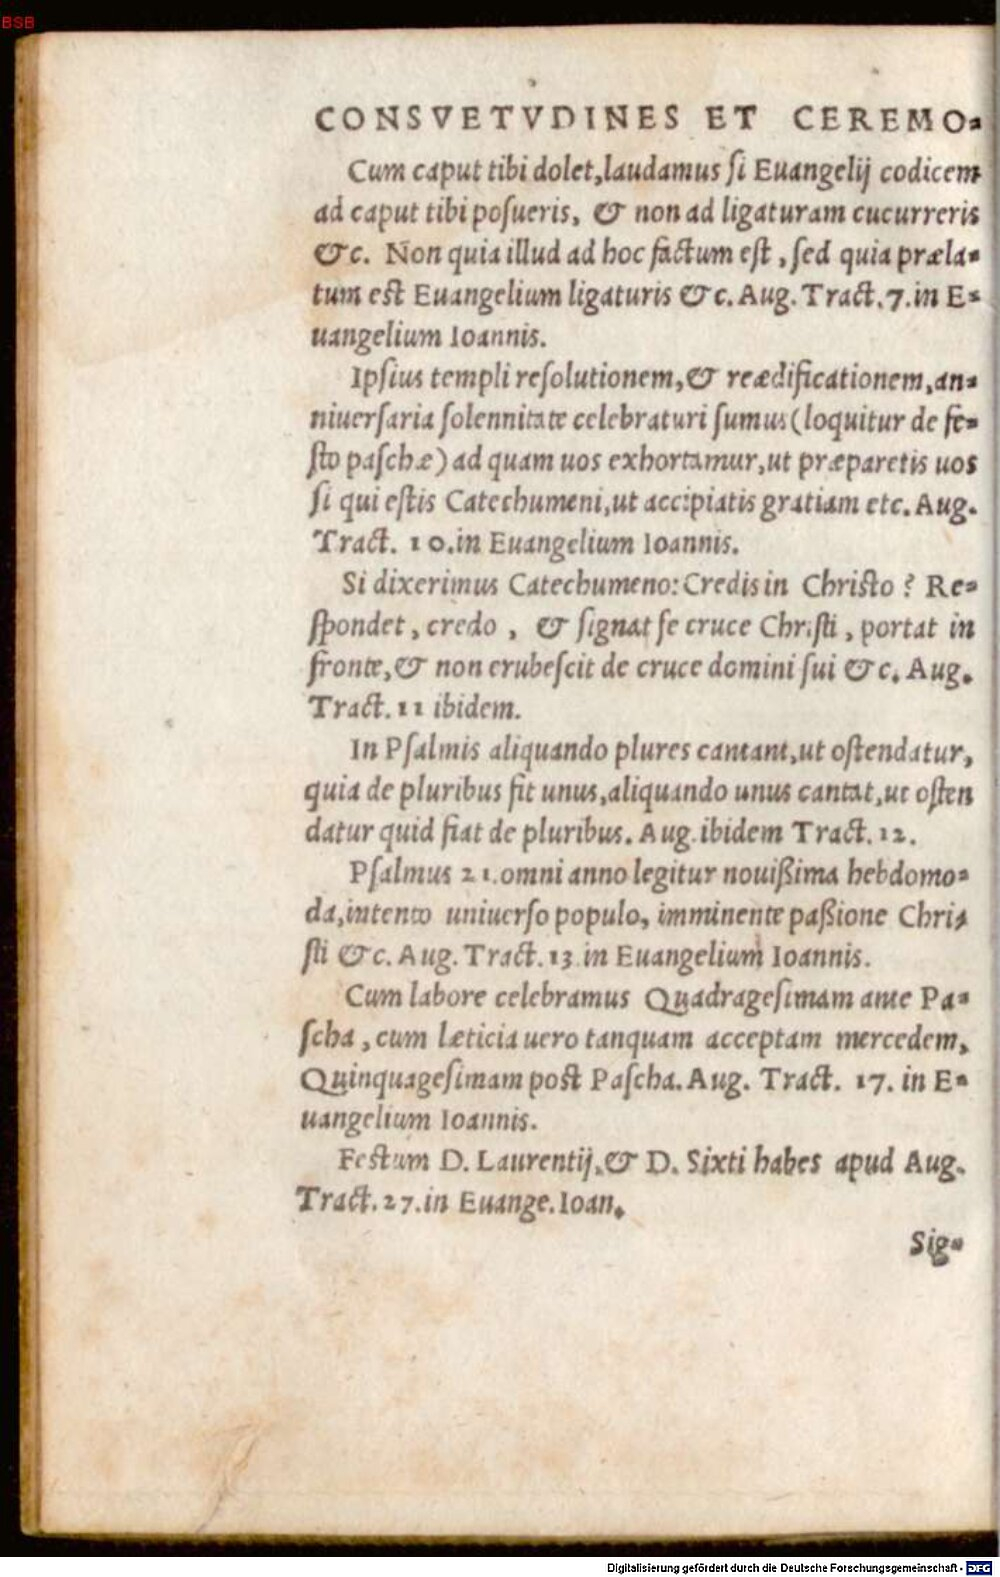 BSB
CONSVETVDINES ET CEREMO-
Cum caput tibi dolet, laudamus ſi Euangelij codicem
ad caput tibi poſueris, & non ad ligaturam cucurreris
&c. Non quia illud ad hoc factum eſt, ſed quia præla-
tum eſt Euangelium ligaturis &c. Aug. Tract. 7. in E-
uangelium Ioannis.
Ipſius templi reſolutionem, & reædificationem, an-
niuerſaria ſolennitate celebraturi ſumus (loquitur de fe-
ſto paſchæ) ad quam uos exhortamur, ut præparetis uos
ſi qui eſtis Catechumeni, ut accipiatis gratiam etc. Aug.
Tract. 10. in Euangelium Ioannis.
Si dixerimus Catechumeno: Credis in Chriſto? Re-
ſpondet, credo, & ſignat ſe cruce Chriſti, portat in
fronte, & non erubeſcit de cruce domini ſui &c. Aug.
Tract. 11 ibidem.
In Pſalmis aliquando plures cantant, ut oſtendatur,
quia de pluribus fit unus, aliquando unus cantat, ut oſten
datur quid fiat de pluribus. Aug. ibidem Tract. 12.
Pſalmus 21. omni anno legitur nouißima hebdomo-
da, intento uniuerſo populo, imminente paßione Chri-
ſti &c. Aug. Tract. 13 in Euangelium Ioannis.
Cum labore celebramus Quadrageſimam ante Pa-
ſcha, cum læticia uero tanquam acceptam mercedem,
Quinquageſimam poſt Paſcha. Aug. Tract. 17. in E-
uangelium Ioannis.
Feſtum D. Laurentij, & D. Sixti habes apud Aug.
Tract. 27. in Euange. Ioan.
Sig-
Digitalisierung gefördert durch die Deutsche Forschungsgemeinschaft - DFG